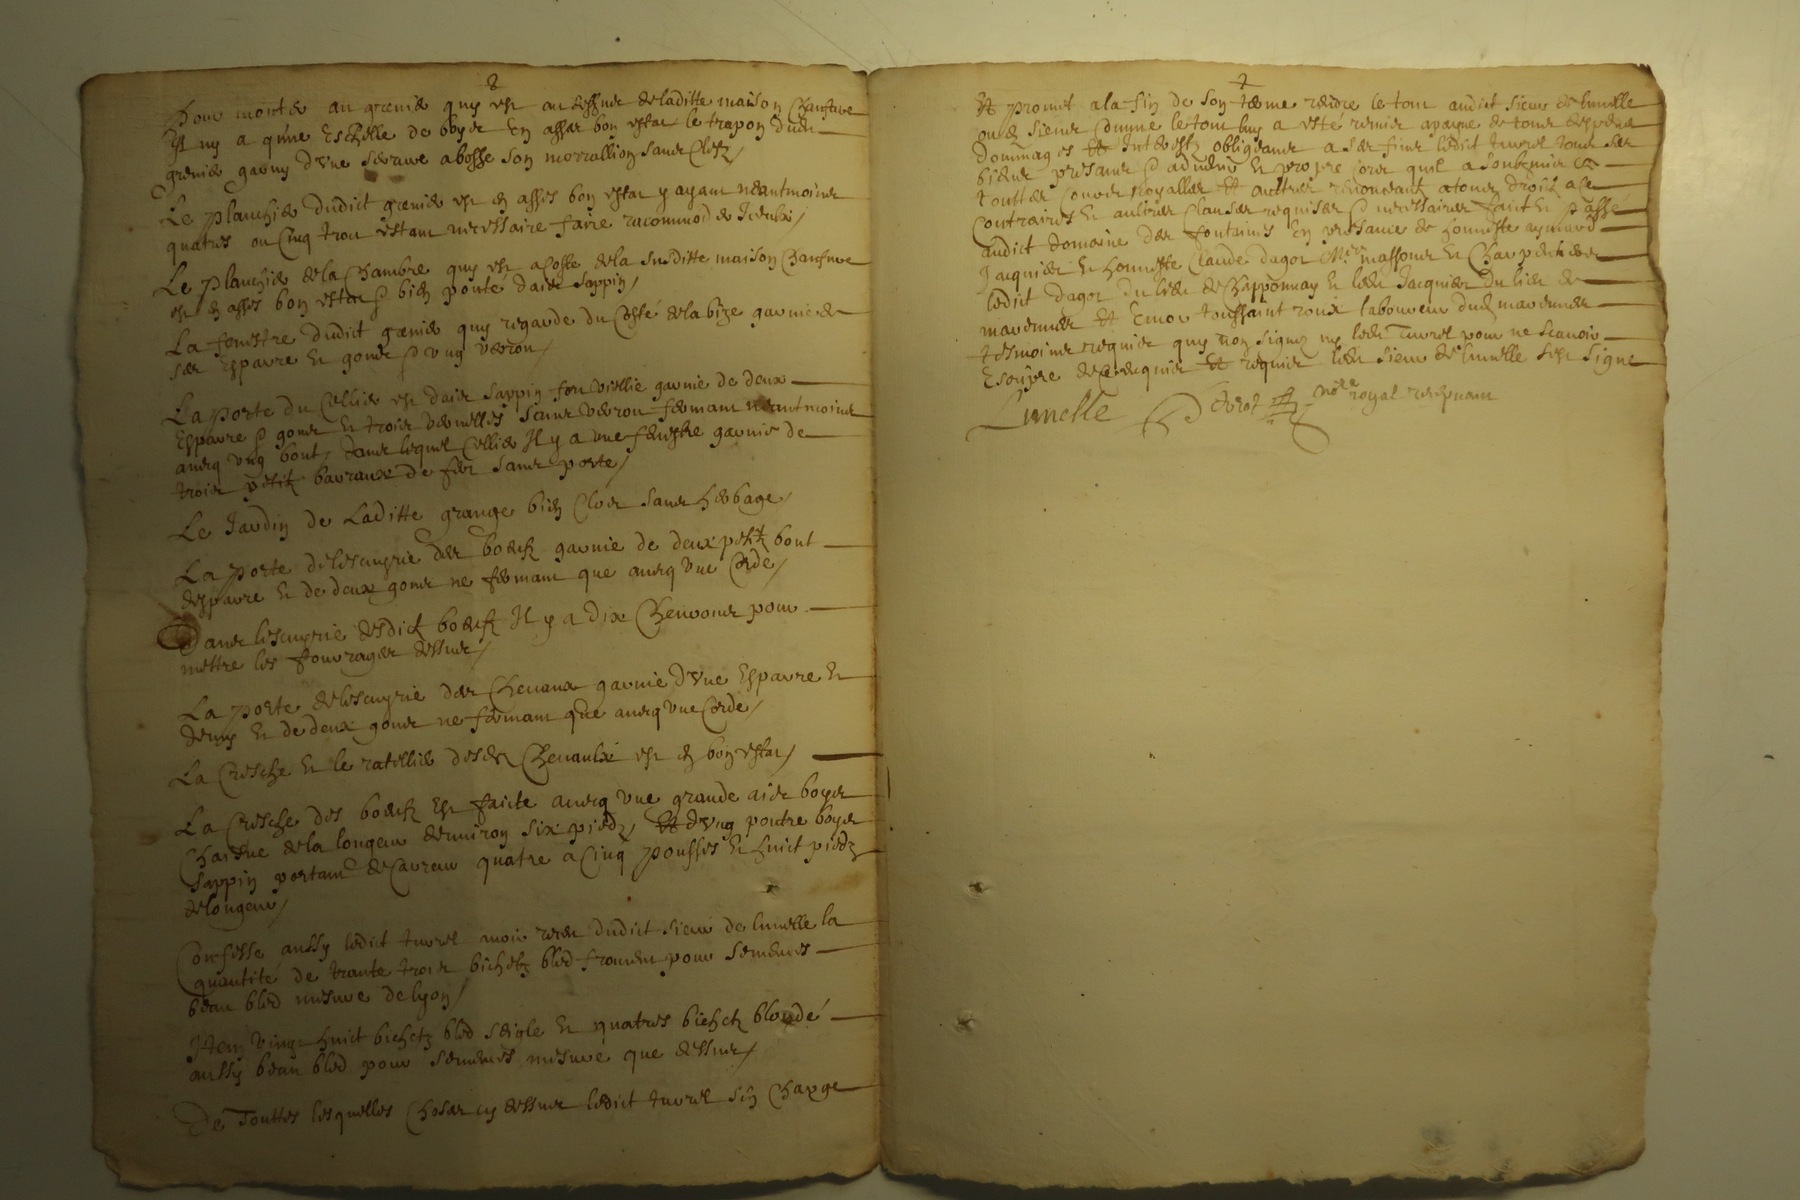 2
Pour monter au grenier quy est au dessus de laditte maison
Il ny a qune eschelle de boys en asses bon estat le trapon dud
grenier garny dune serrure a bosse son morrallion sans clefz /
Le planchier dudict grenier est en asses bon estat y ayant neantmoins
quatres ou cinq trou estant necessaire faire racommoder Iceulx /
Le planchier de la chambre quy est a coste de la susditte maison
est en asses bon estat & bien porté dais sappin /
La fenestre dudict grenier quy regarde du costé de la bize garnie de
ses esparre et gons & ung verrou /
La porte du cellier est dais sappin fort viellie garnie de deux
esparre & gons et trois vernelles sans verrou fermant neantmoins
avecq ung bout / dans lequel cellier Il y a une fenestre garnie de
trois petitz barraux de fer sans porte /
Le Jardin de Laditte grange bien clos sans herbage /
La porte de lescuyrie des boeufz garnie de deux petitz bout
desparre et de deux gons ne fermant que avecq une corde /
Dans lescuyrie desdictz boeufz Il y a dix chevrons pour
mettre les fourrages dessus /
La porte de lescuyrie des chevaux garnie dune esparre et
demy et de deux gons ne fermant que avecq une corde /
La cresche et le ratellier desd chevaulx est en bon estat /
La cresche des boeufz est faicte avecq une grande ais boys
chaisne de la longeur denviron six piedz / Et dung poutre boys
sappin portant de carreur quatre a cinq pousses et huict piedz
de longeur /
Confesse aussy ledict turrel avoir receu dudict sieur de lunelle la
quantité de trante trois bichetz bled froment pour semences
beau bled mesure de lyon /
Item vingt huict bichetz bled seigle et quatres bichetz blondé
aussy beau bled pour semences mesure que dessus /
De Touttes lesquelles choses cy dessus ledict turrel sen charge
Et promet a la fin de son terme rendre le tout audict sieur de lunelle
ou es siens comme le tout luy a esté remis a payne de tous despens
dommages et Interestz obligeant a ses fins ledict turrel tous ses
biens presans & advenir et propre corps quil a soubzmis a
touttes cours royalles et aultres renonceant a tous droitz a ce
contraires et aultres clauses requises & necessaires faict et passé
audict domaine des fontaines en presance de honneste aymard
Jacquier et honneste Claude dagot Mres massons et charpentiers
ledict dagot du lieu de chapponnay et led Jacquier du lieu de
marennes Et Encor toussaint roux laboureur dud marennes
tesmoins requis quy nont signez ny led turrel pour ne scavoir
escripre de ce enquis et requis led sieur de lunelle sest signe
Lunelle
nore royal recepvant